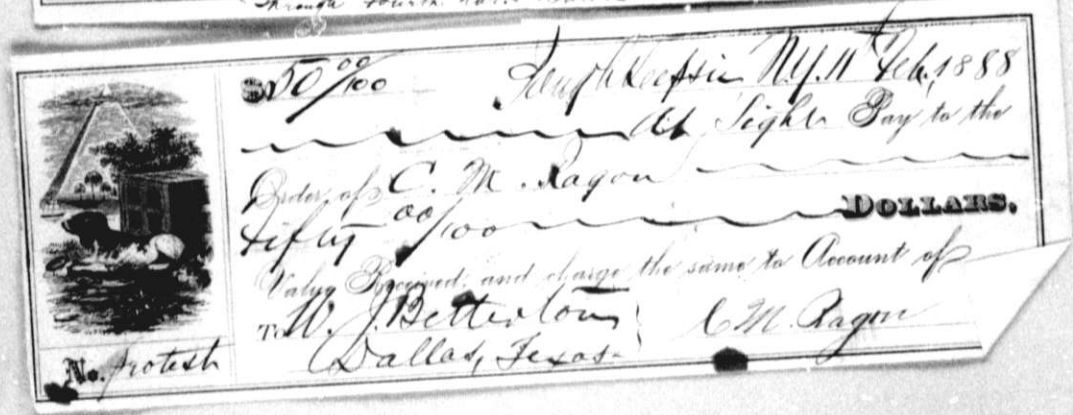 Through fourth
$50 00/100 Poughkeepsie N.Y. 11" Feb. 1888
At Sight Pay to the
Order of C. M. Ragon
Fifty 00/100 DOLLARS.
Value Received and charge the same to Account of
To W. J. Betterton C M. Ragon
Dallas, Texas.
No. Protest